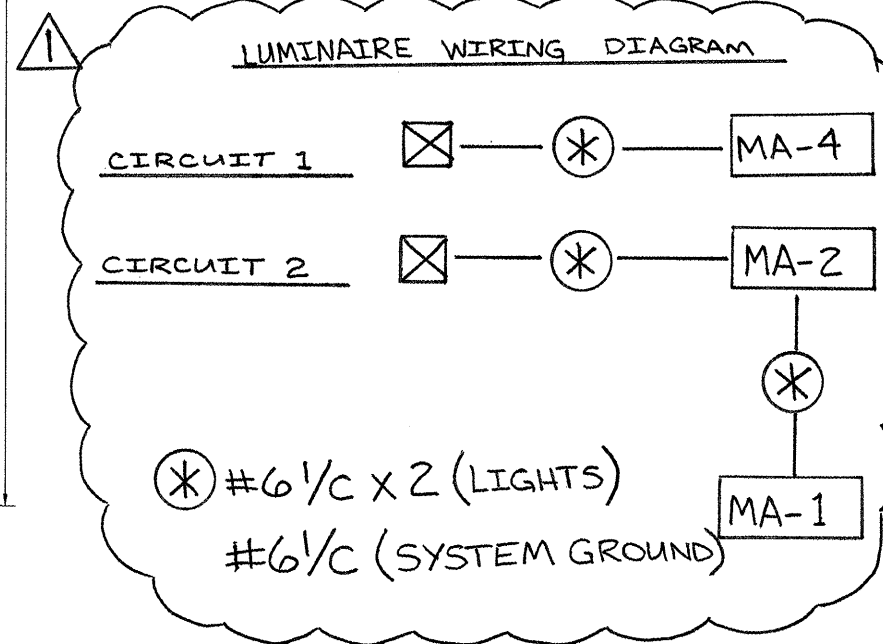 1
LUMINAIRE WIRING DIAGRAM
CIRCUIT 1
MA-4
CIRCUIT 2
MA-2
#6 1/C X 2 (LIGHTS)
MA-1
#6 1/C (SYSTEM GROUND)